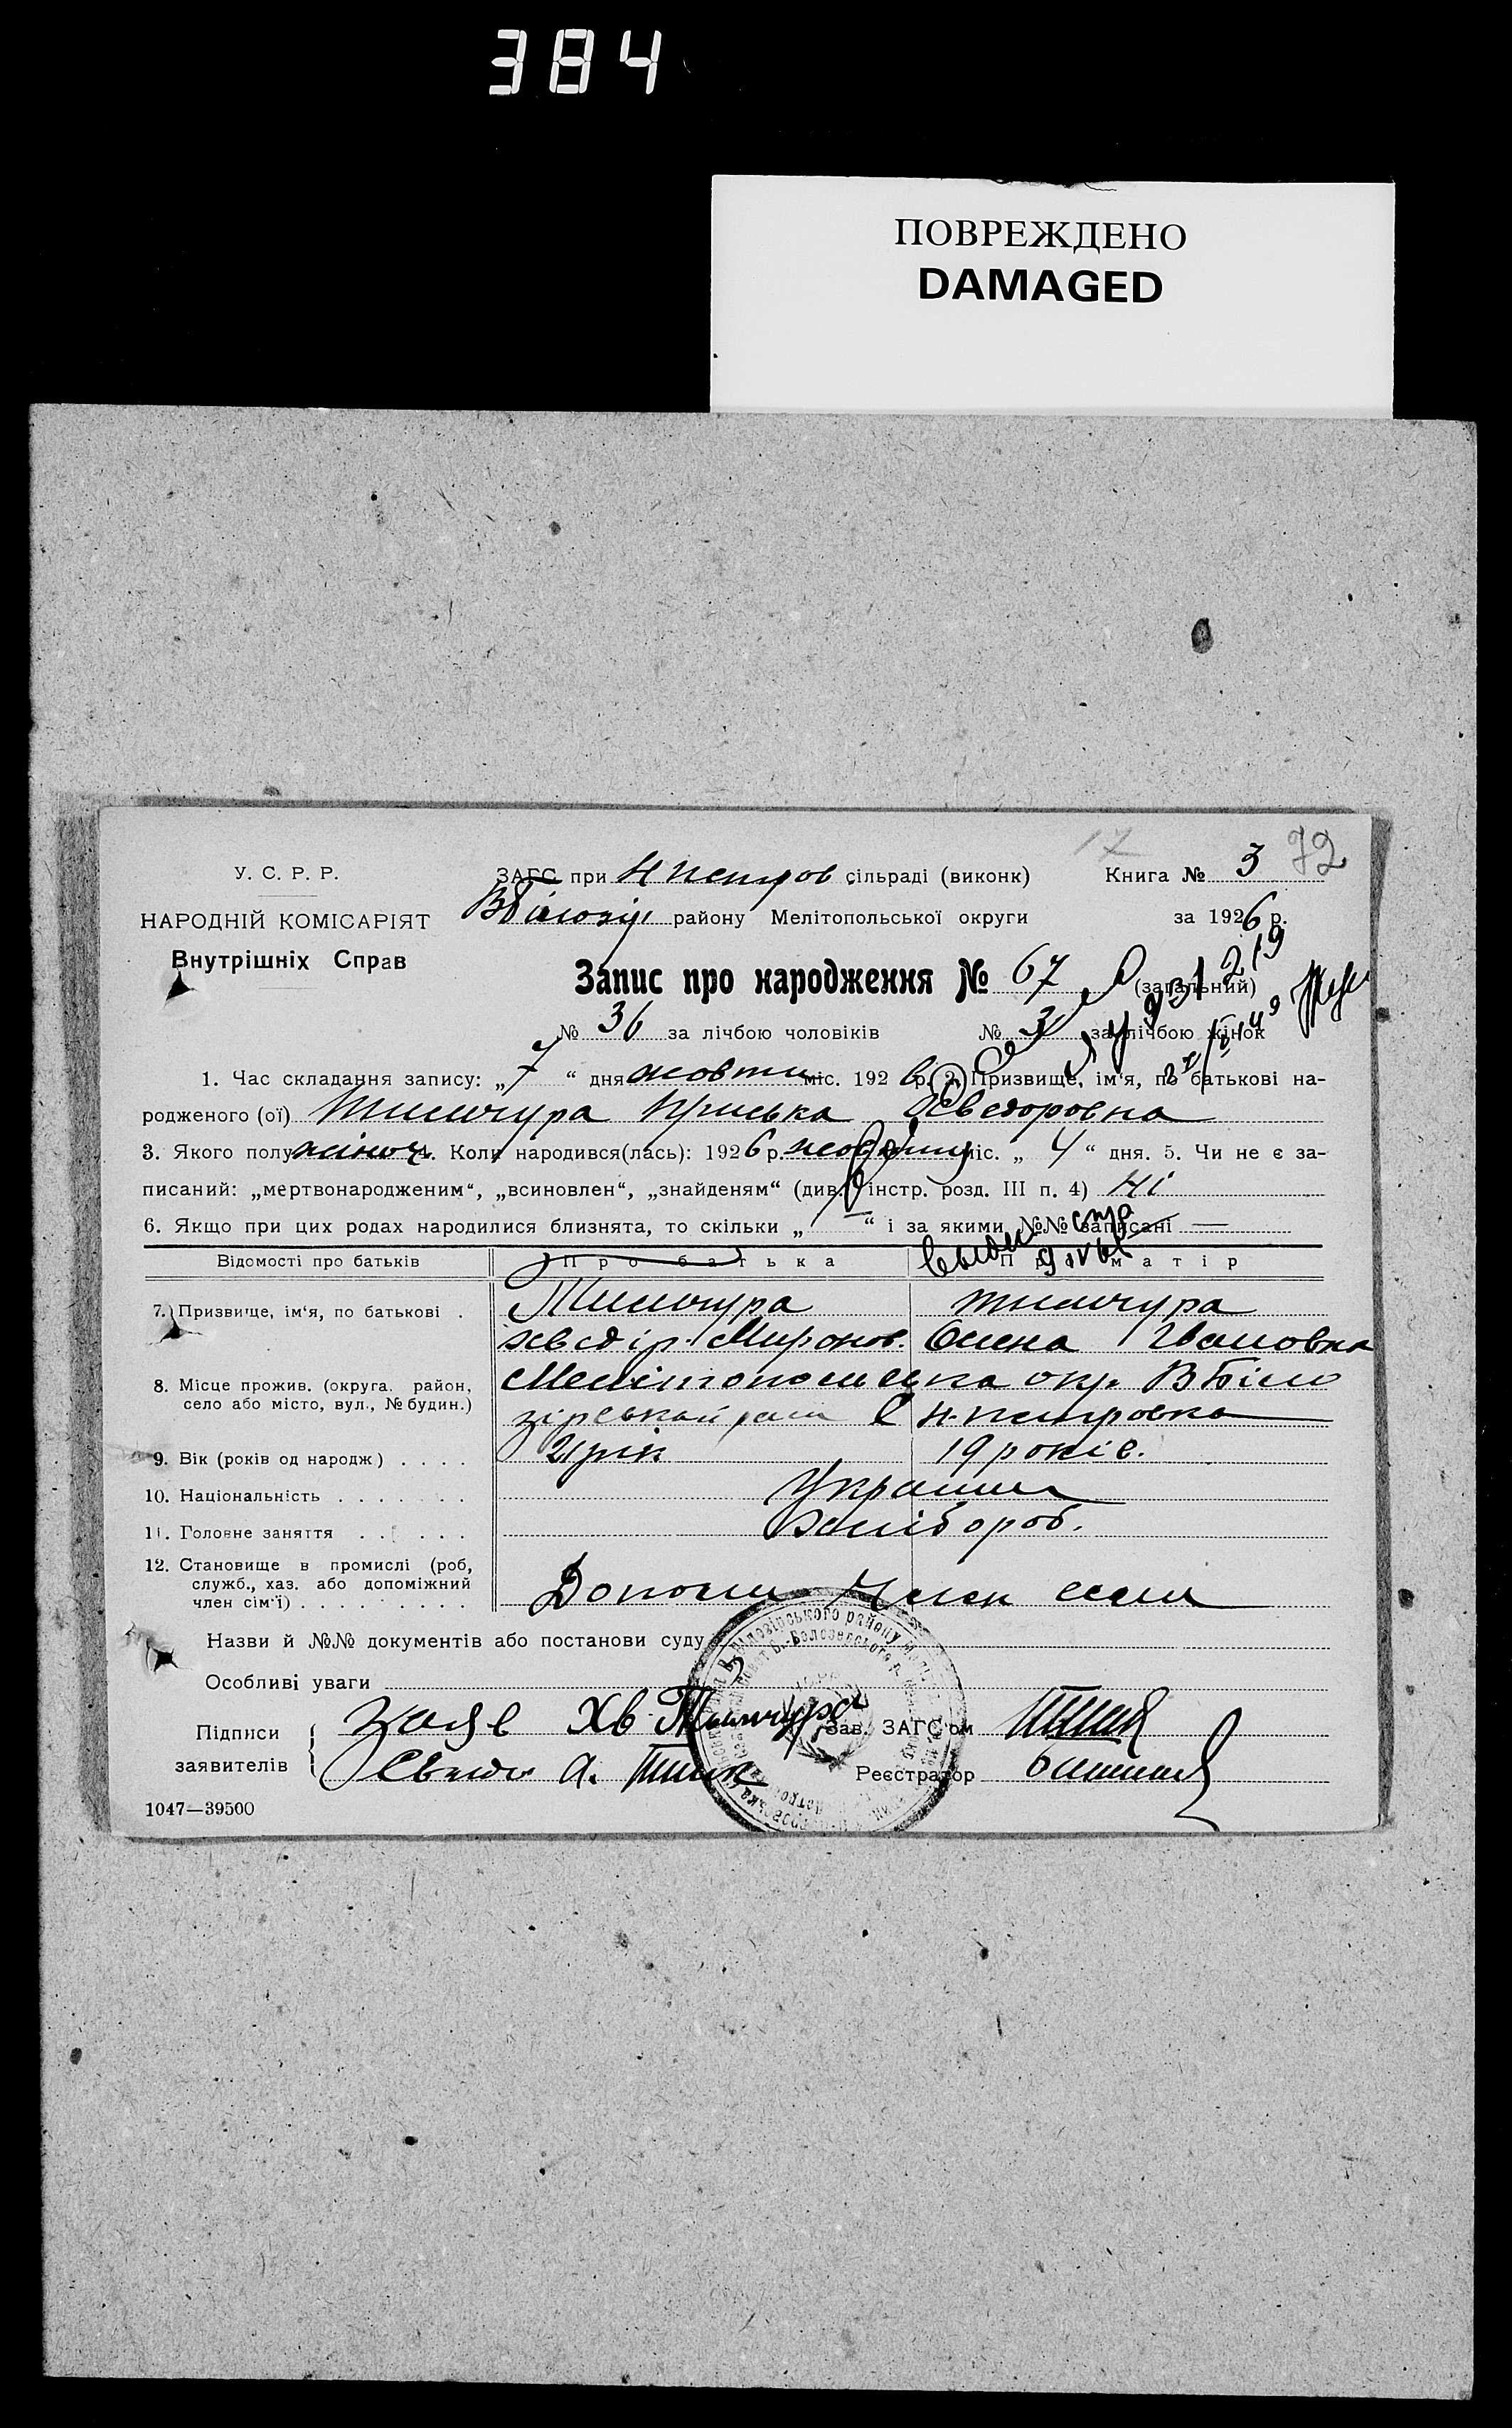 384
ПОВРЕЖДЕНО
DAMAGED
17 72
У. С. Р. Р.
НАРОДНІЙ КОМІСАРІЯТ
Внутрішніх Справ
ЗАГС при Н петров сільраді (виконк) Книга № 3
ВБілозір району Мелітопольської округи за 1926 р.
Запис про народження № 67 (загальний)
№ 36 за лічбою чоловіків № 31 за лічбою жінок
1. Час складання запису: „7“ дня жовтн міс. 1926 р. 2. Призвище, ім'я, по батькові на-
родженого (ої) Тимчура Приська Хведоровна
3. Якого полу жіноч. 4. Коли народився(лась): 1926 р. жовтня міс. „4“ дня. 5. Чи не є за-
писаний: „мертвонародженим“, „всиновлен“, „знайденям“ (див. інстр. розд. III п. 4) Ні
6. Якщо при цих родах народилися близнята, то скільки „—“ і за якими №№ записані —
Відомості про батьків Про батька Про матір
7. Призвище, ім'я, по батькові . Тимчура Тимчура
Хведір Миронов. Олена Івановна
8. Місце прожив. (округа, район, село або місто, вул., № будин.) Мелітопольська окр. ВБіло
зірський рай С Н-петровка
9. Вік (років од народж) . . . . 21 рік 19 років.
10. Національність . . . . . . Україн
11. Головне заняття . . . . . Хлібороб.
12. Становище в промислі (роб, служб., хаз. або допоміжний член сім'ї) . . . . . . . . . Допом Член сем
Назви й №№ документів або постанови суду
Особливі уваги
Підписи заявителів
Заяв Хв Тимчура Зав. ЗАГС'ом
Свідк А. Реєстратор
1047—39500